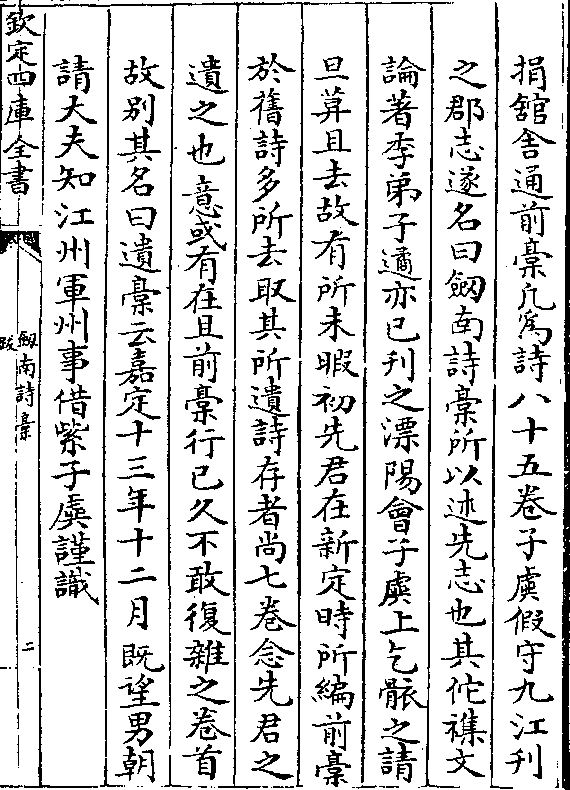 捐舘舍通前稾凡爲詩八十五卷子虡假守九江刋
之郡志遂名曰劔南詩稾所以述先志也其佗襍文
論著季弟子遹亦已刋之溧陽會子虡上乞骸之請
旦莫且去故有所未暇初先君在新定時所編前稾
於舊詩多所去取其所遺詩存者尚七卷念先君之
遺之也意或有在且前稾行已久不敢復雜之卷首
故别其名曰遺稾云嘉定十三年十二月旣望男朝
請大夫知江州軍州事借紫子虡謹識
欽定四庫全書
劔南詩稾
跋
二